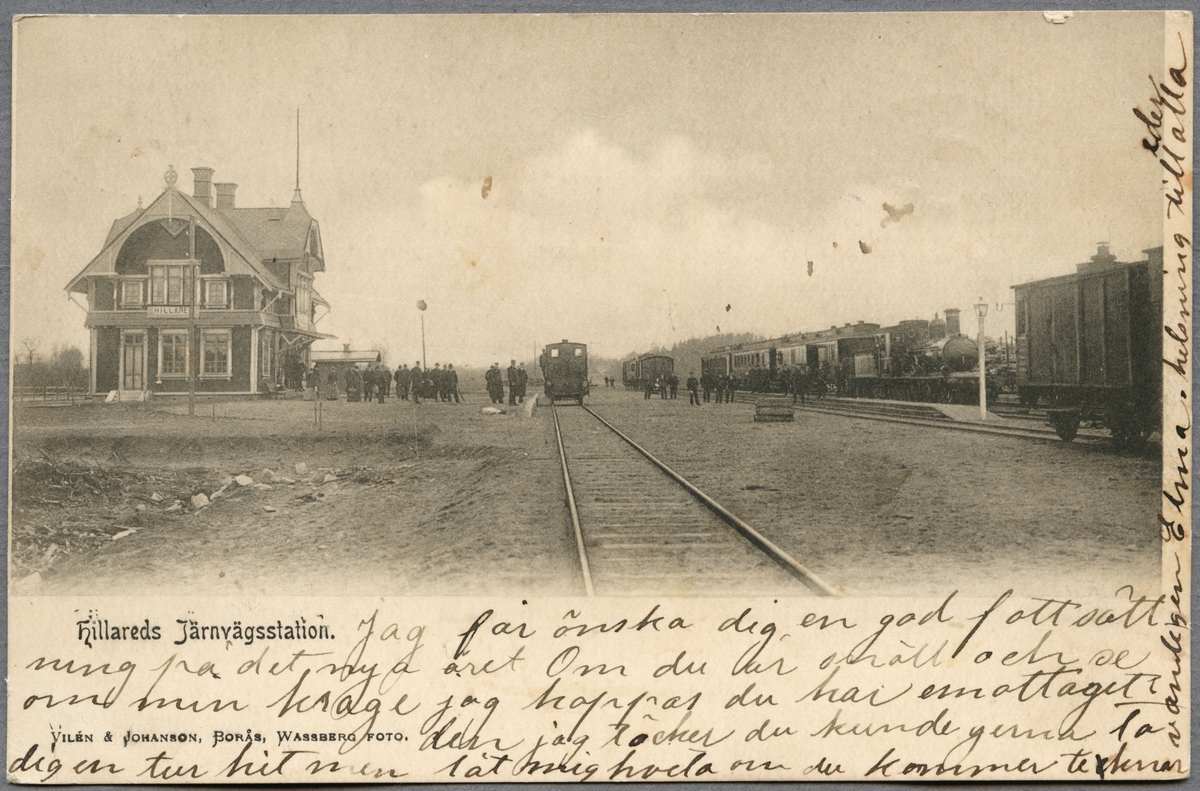 HILLARED
Hillareds Järnvägsstation.
Jag får önska dig en god fottsätt
ning på det nya året Om du är snäll och se
om min krage jag hoppas du har emottaget?
VILÉN & JOHANSON, BORÅS, WASSBERG FOTO.
den jag töcker du kunde gerna ta
dig en tur hit men låt mig hveta om du kommer tecknar
vänligen Elma. helsning till alla
eder